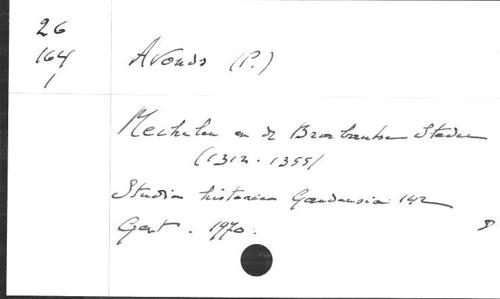 26
164
1
Avonds (P.)
Mechelen en de Brabantse Steden
(1312-1355)
Studia historica Gandensia 142
Gent. 1970.
8